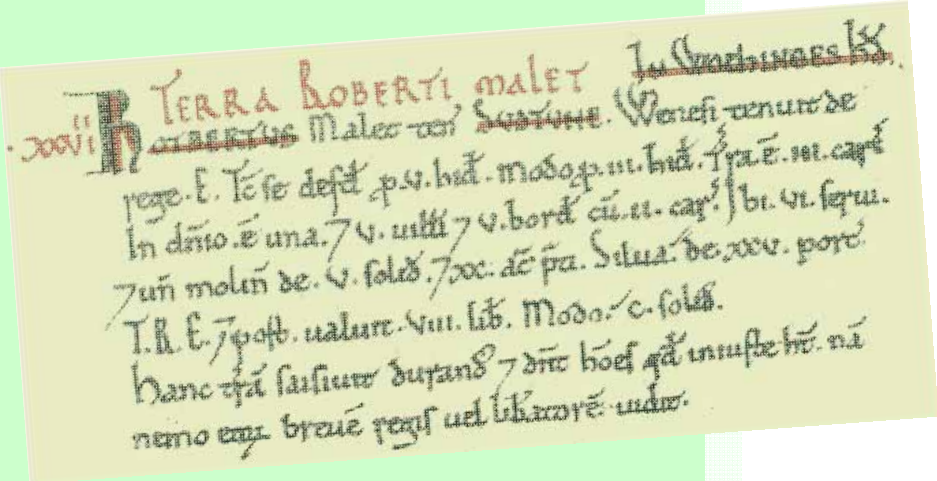 TERRA ROBERTI MALET IN WOCHINGES HD.
.XXVII. ROTBERTUS Malet teñ SUDTUNE. Wenesi tenuit de
rege.E. Tc̄ se defđ p.v.hiđ. modo p.iii.hiđ. Tra.ē.iii.carᵲ
In dñio.ē una.7 v.uiłłi 7 v.borđ cū.ii.car̃. Ibi.vi.serui.
7 uñ moliñ de.v.soliđ.7 xx. ac̄ p̃ti. Silua. de.xxv. porc̄.
T.R.E.7 post.ualuit.viii.lib̄. Modo. c.soliđ.
Hanc tr̄ā saisiuit durand9 7 dn̄t hōēs qđ iniuste ht̄. nā
nemo eoꝝ breuē regis uel libatorē uidit.